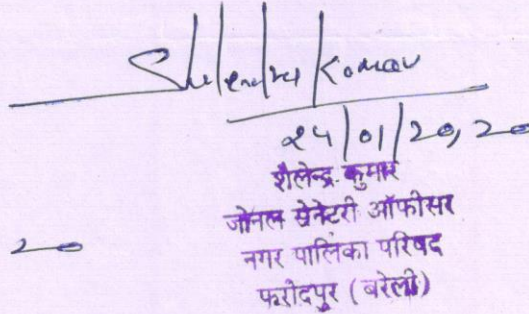 Shilendra Kumar
24/01/20,20
शैलेन्द्र कुमार
जोनल सेनेटरी ऑफीसर
नगर पालिका परिषद
20
फरीदपुर (बरेली)